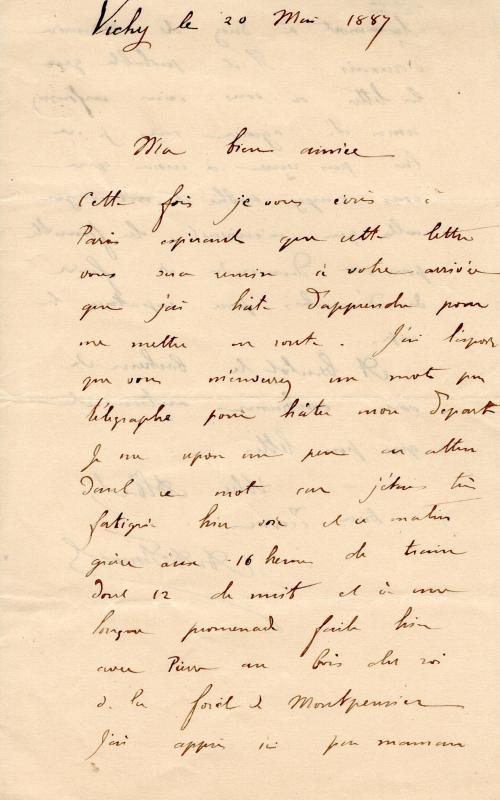 Vichy le 20 Mai 1887
Ma bien aimée
Cette fois je vous écris à
Paris espérant que cette lettre
vous sera remise à votre arrivée
que j'ai hâte d'apprendre pour
me mettre en route. J'ai l'espoir
que vous m'enverrez un mot par
télégraphe pour hâter mon départ
Je me repose un peu en atten
dant ce mot car j'étais très
fatigué hier soir et ce matin
grâce aux 16 heures de train
dont 12 de nuit et à une
longue promenade faite hier
avec Pierre au bois du roi
de la forêt de Montpensier
J'ai appris ici par maman